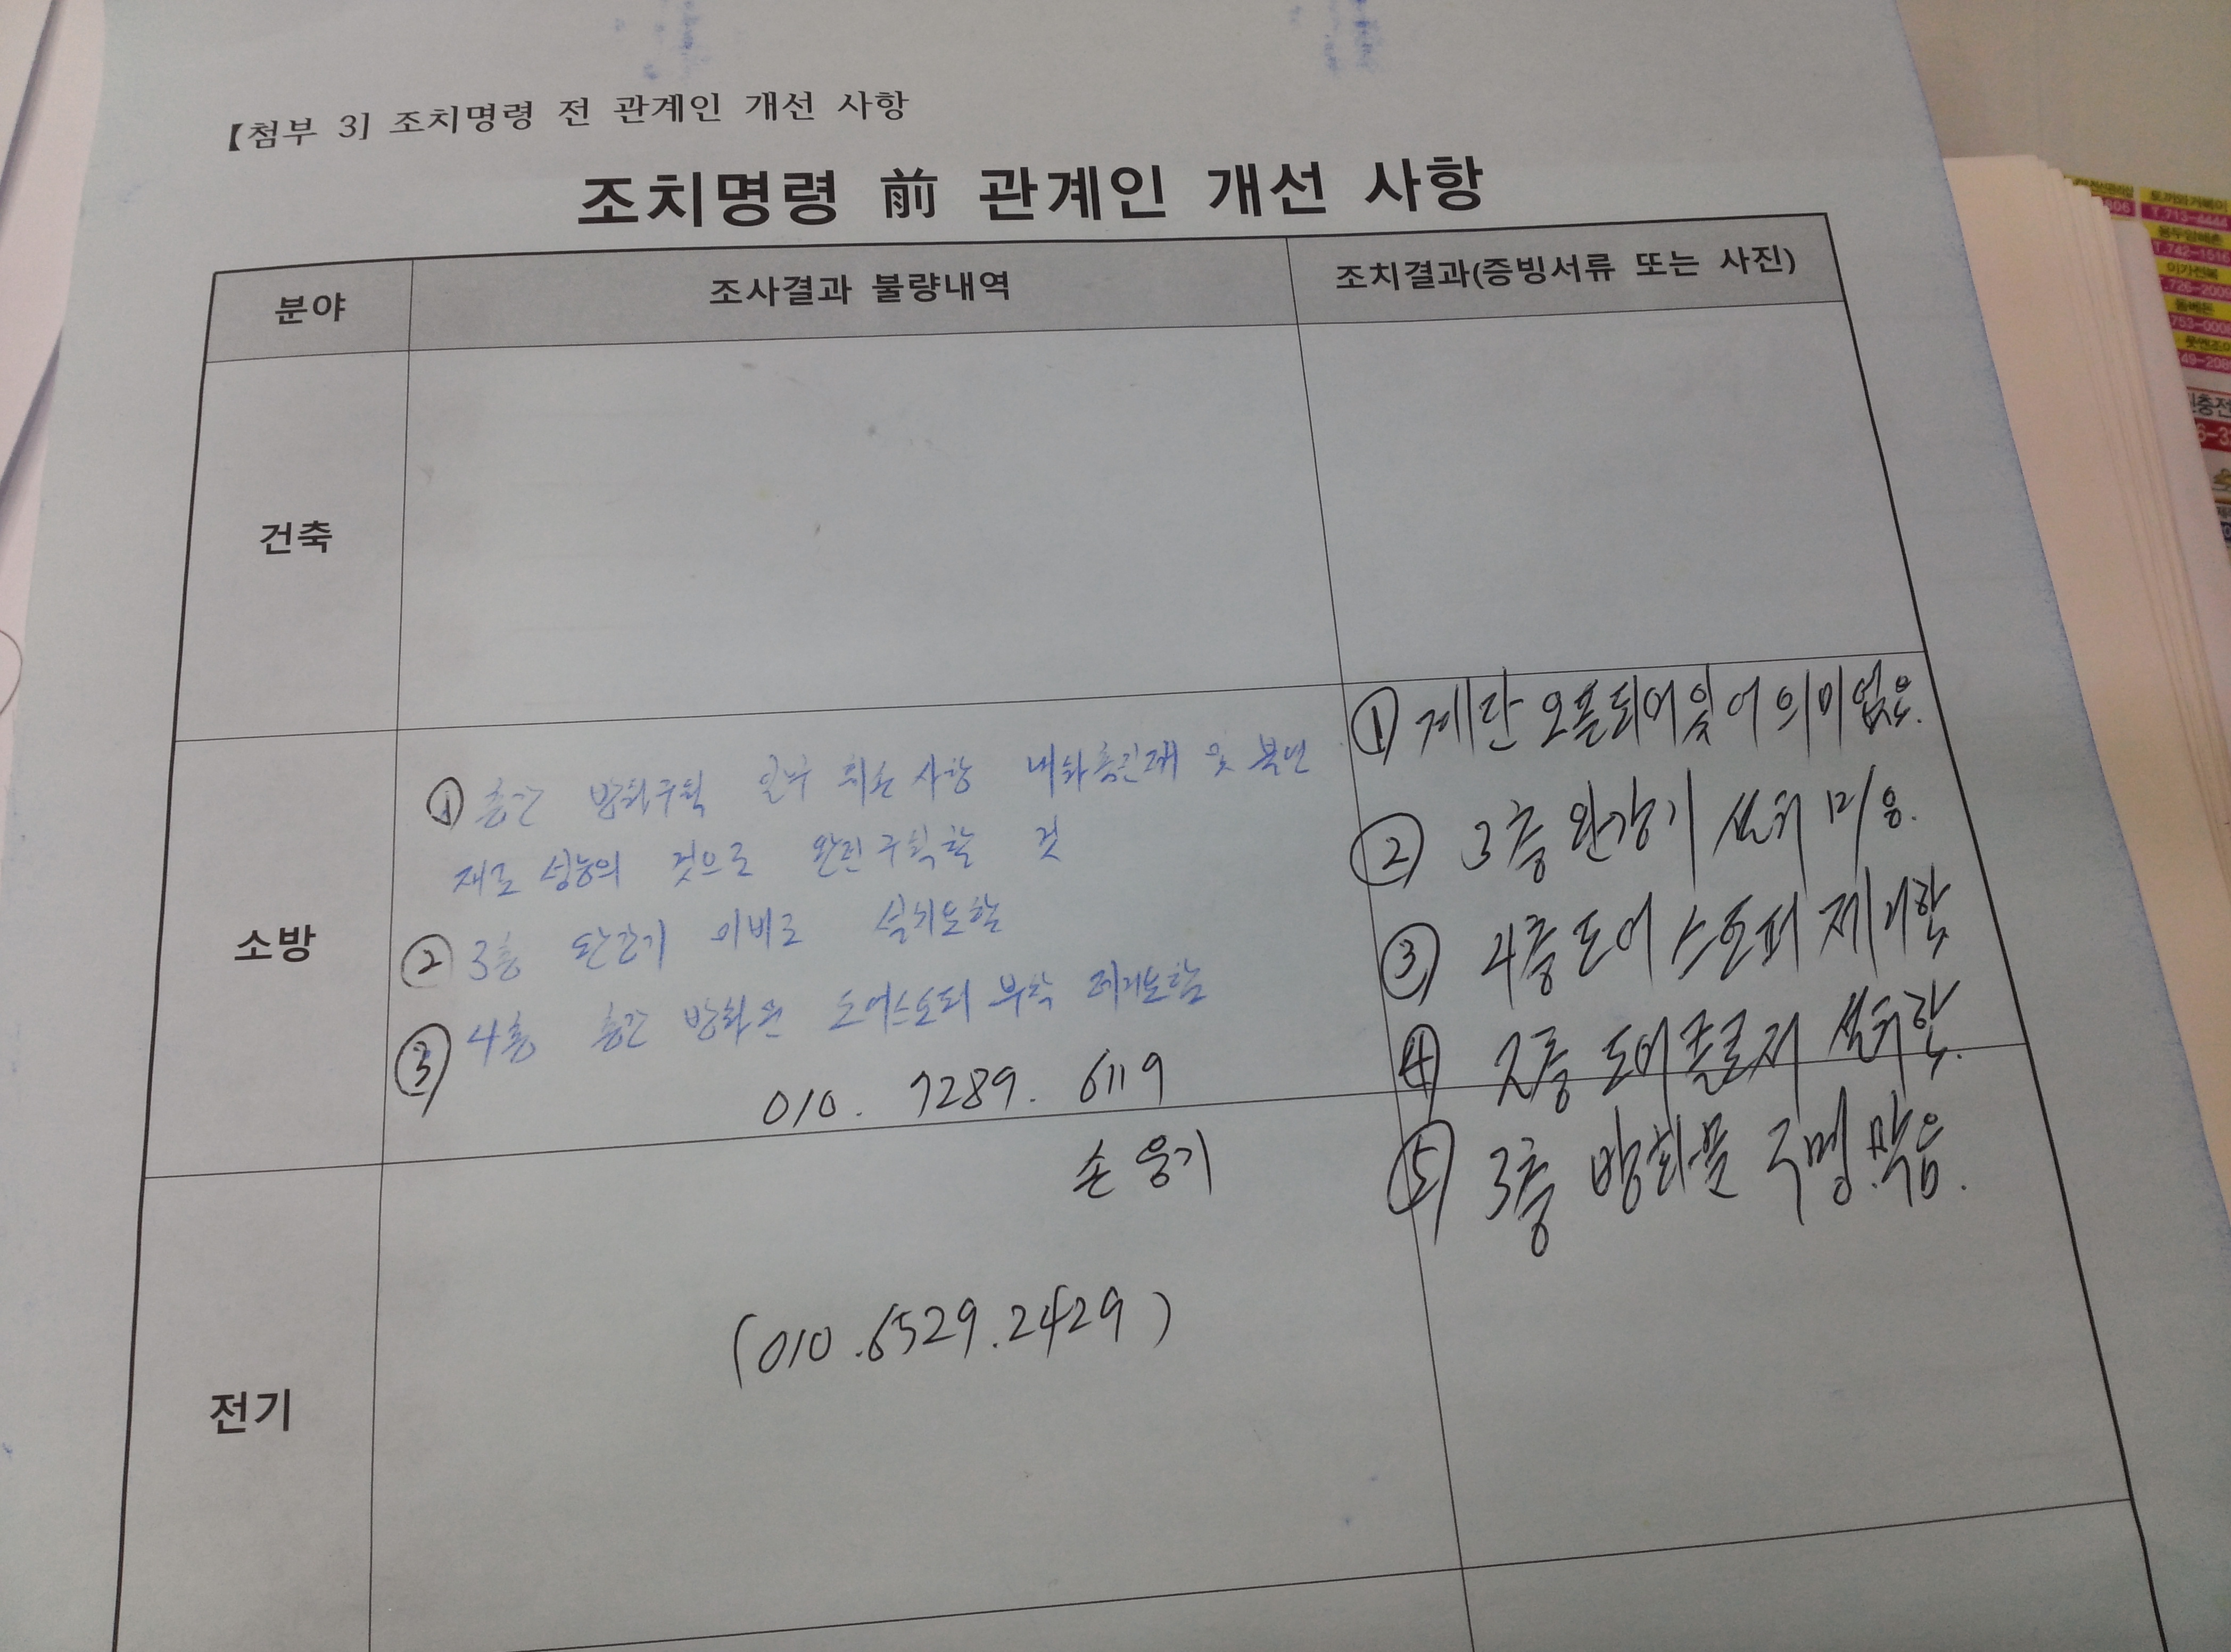 【첨부 3] 조치명령 전 관계인 개선 사항
조치명령 前 관계인 개선 사항
분야 조사결과 불량내역 조치결과(증빙서류 또는 사진)
건축
소방
① 층간 방화구획 일부 훼손 사항 내화충진재 및 불연
재료 성능의 것으로 완전구획할 것
② 3층 완강기 미비로 설치요함
③ 4층 층간 방화문 도어스토퍼 부착 제거요함
010. 7289. 6119
손웅기
① 계단 오픈되어있어 의미없음.
② 3층 완강기 설치
③ 4층 도어 스토퍼 제거함
④ 2층 도어 클로저 설치함.
⑤ 3층 방화문 구멍 막음.
전기
(010.6529.2429)
T.713-4444
T.742-1516
이가전복
.726-2009
돔베돈
753-000